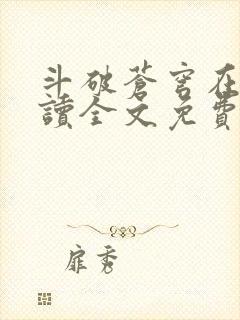 斗破苍穹在
讀全文免費
扉秀